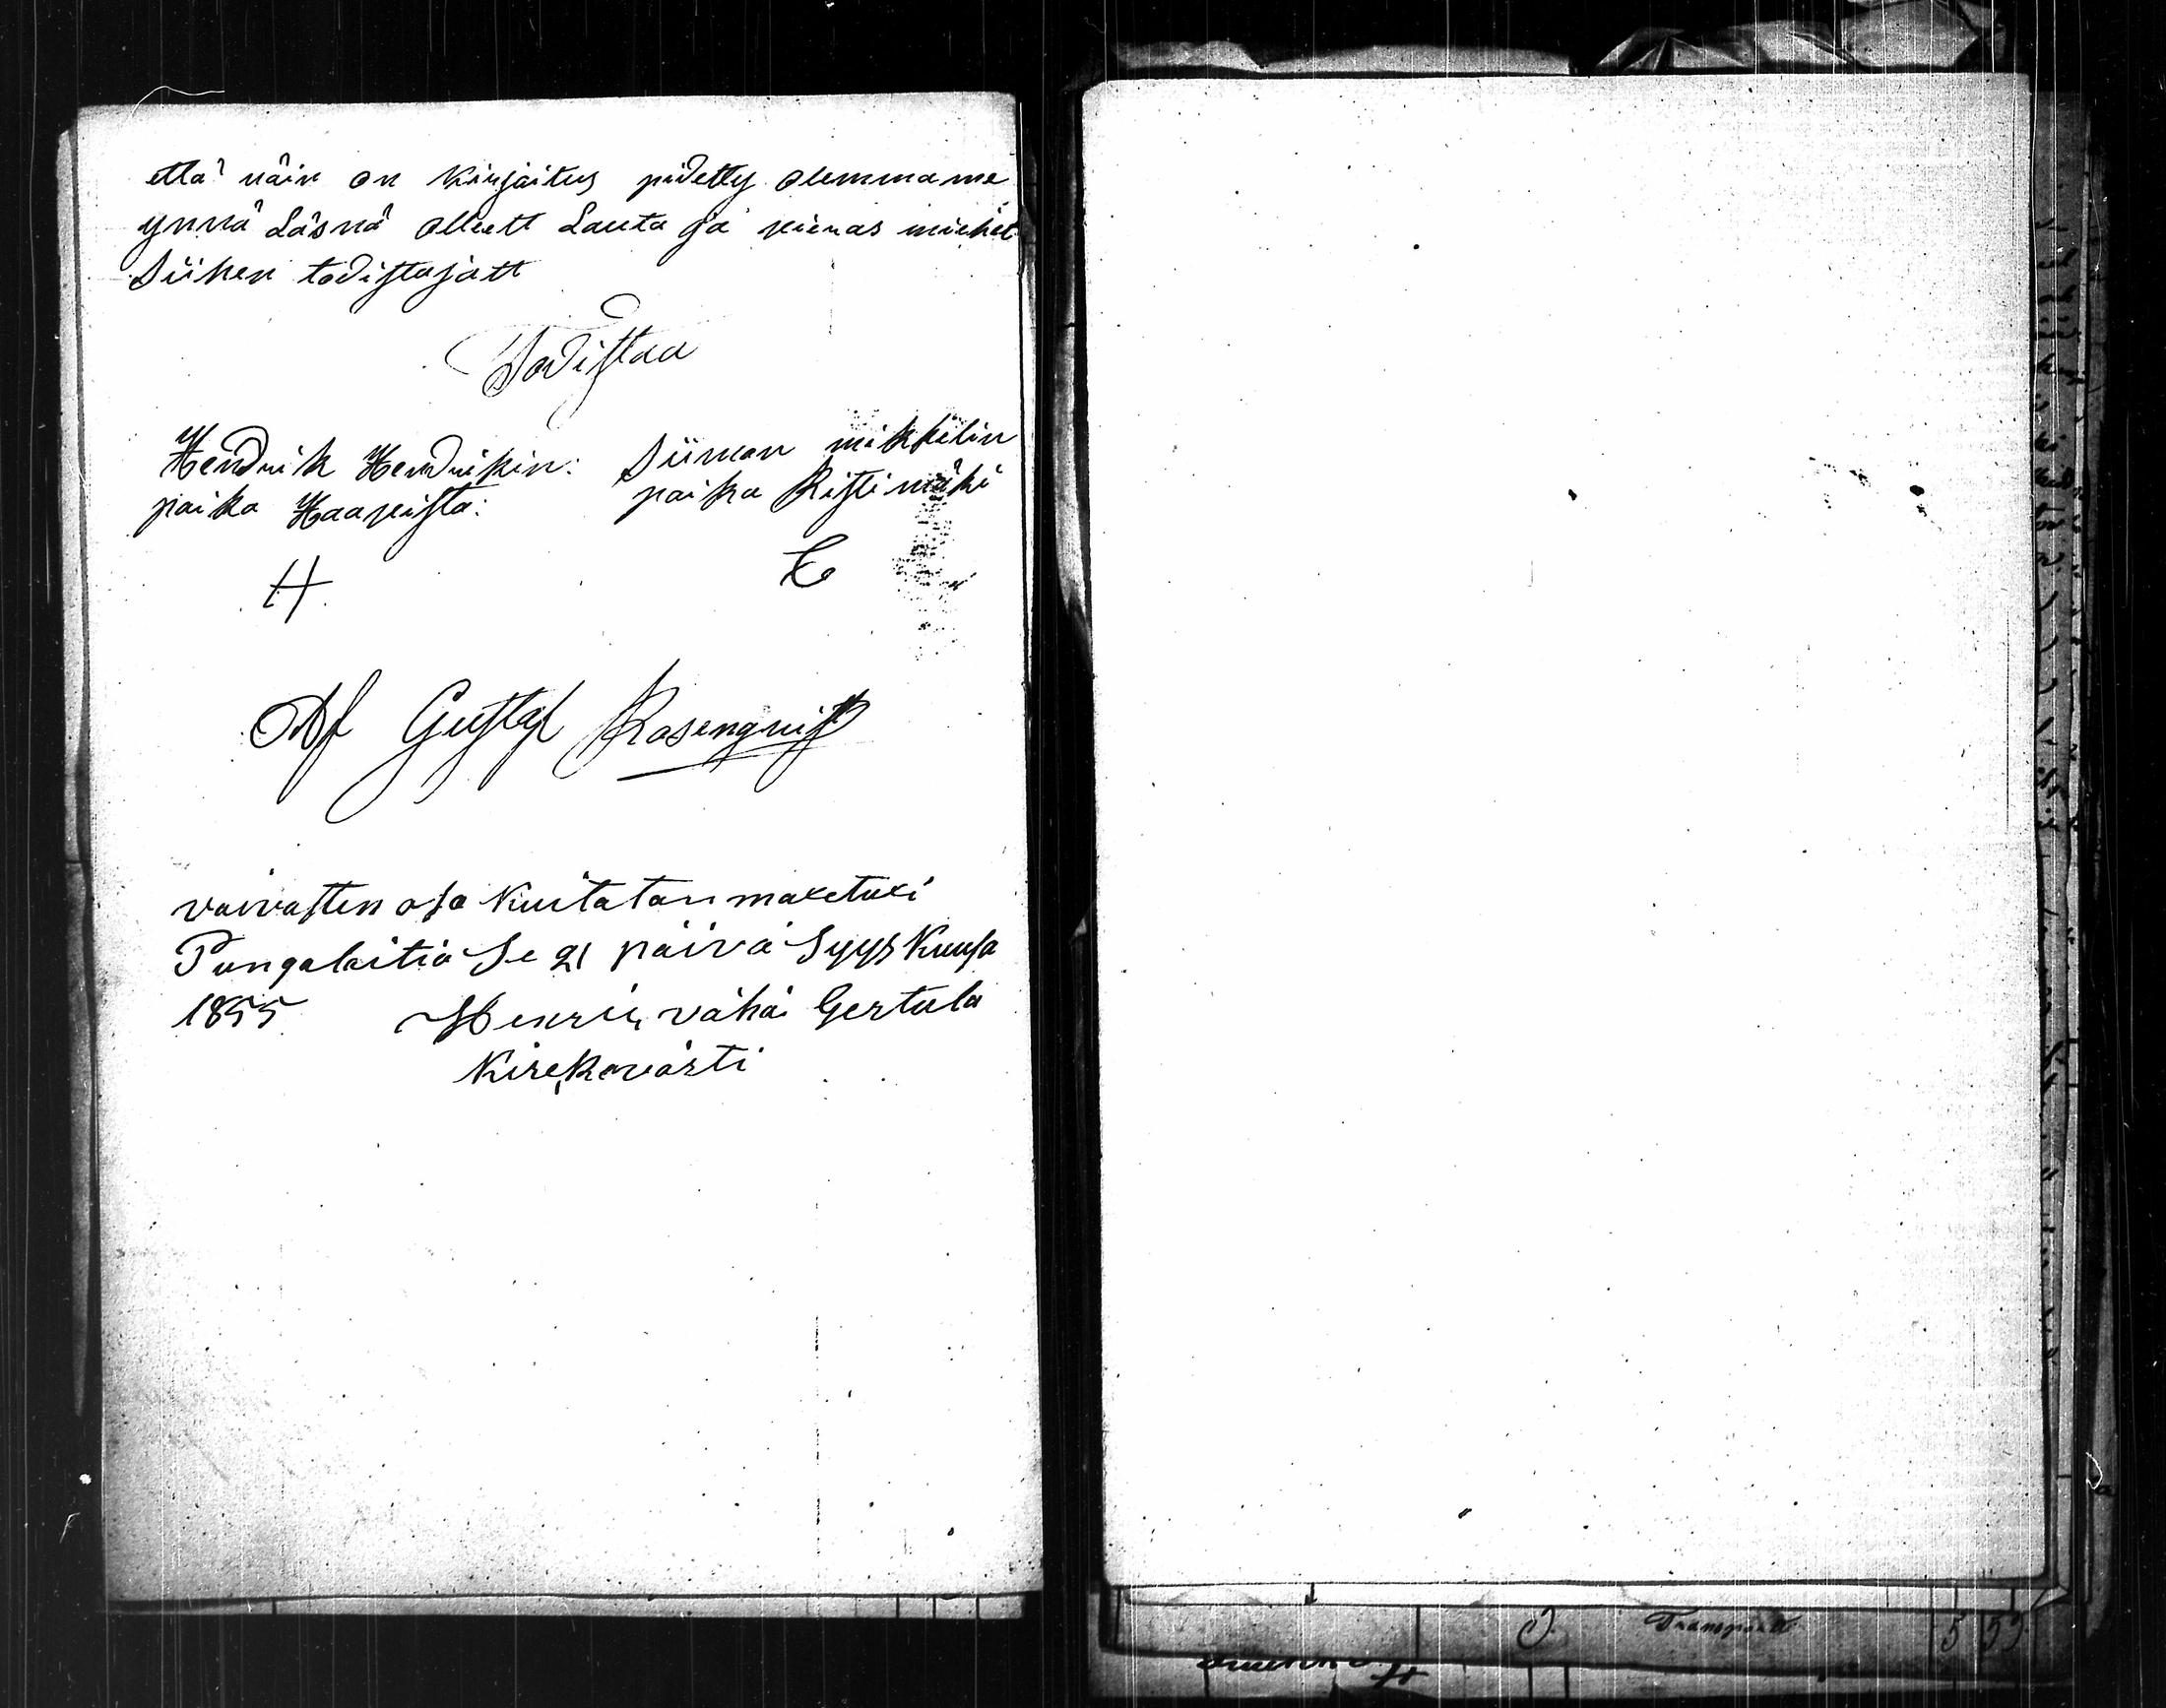 että näin on Kirjaitus pidetty olemma me
ynnä Läsnä olleett Lauta ja vieras miehet
Siihen todistajatt
Todistaa
Hendrik Hendrikin:
poika Haavista:
H
Siimon mikkilin
poika Ristimäki
Af Gustaf Rosenqvist
vaivasten osa Kuitatan maxetuxi
Pungalaitio Se 21 päivä Syys Kuusa
1855 Henrik vähä Gertula
Kirckovästi
Transport
5 59